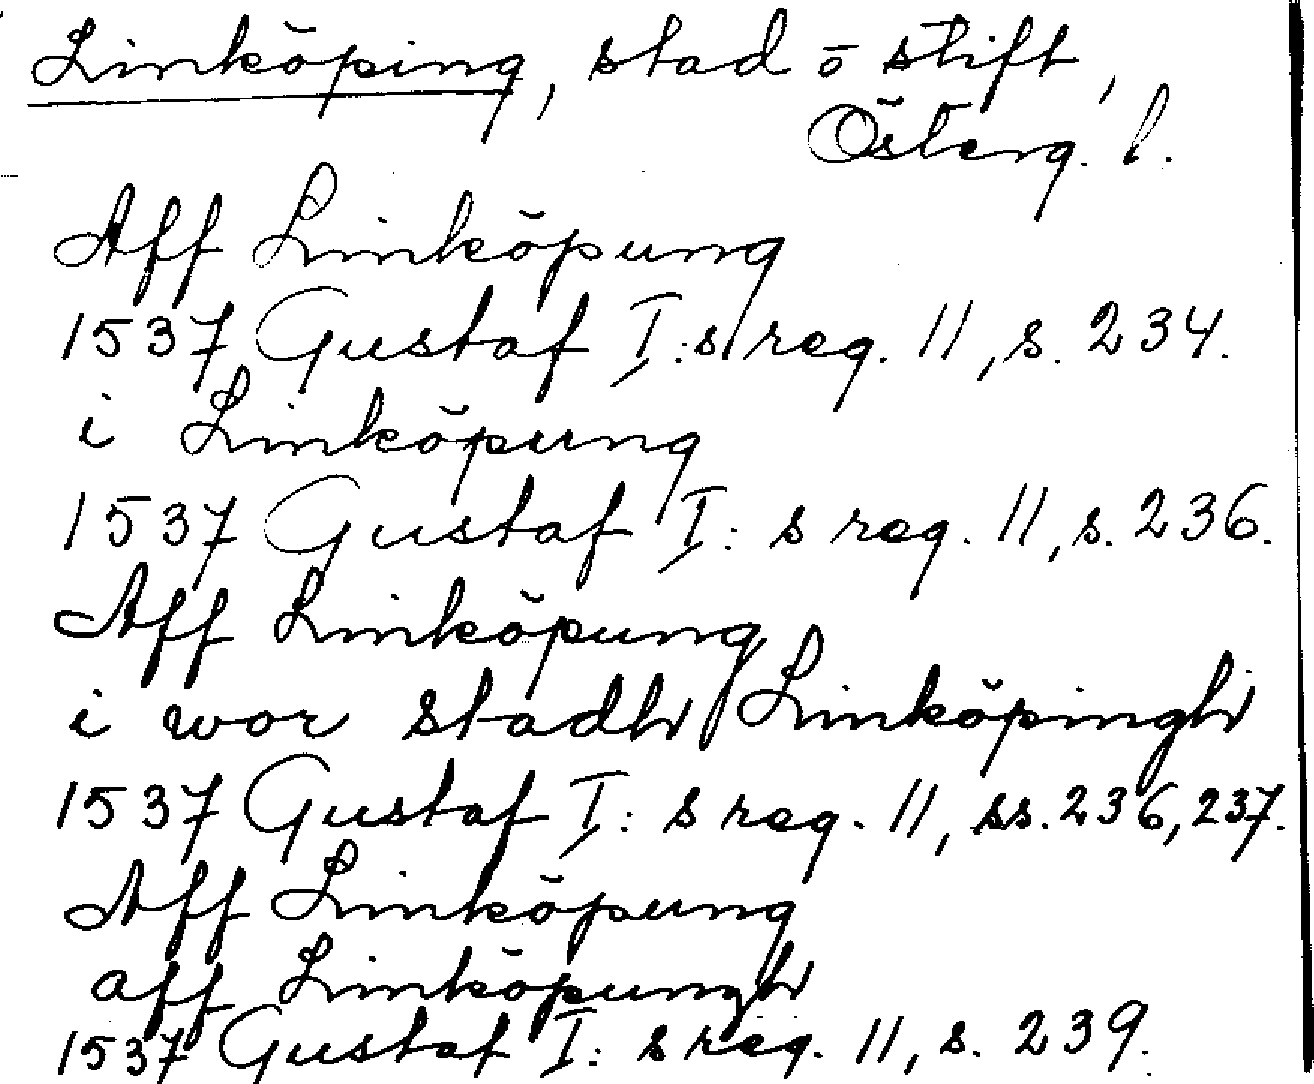 Linköping, stad o stift,
Österg. l.
Aff Linköpung
1537 Gustaf I:s reg. 11, s. 234.
i Linköpung
1537 Gustaf I:s reg. 11, s. 236.
Aff Linköpung
i wor stadh Linköpingh
1537 Gustaf I:s reg. 11, ss. 236, 237.
Aff Linköpung
aff Linköpungh
1537 Gustaf I:s reg. 11, s. 239.